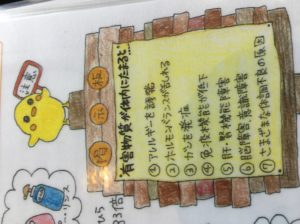 注意
有害物質が体内にたまると…
① アレルギーを誘発
② ホルモンバランスがくずれる
③ カンを発症
④ 免疫機能が低下
⑤ 肝・腎機能障害
⑥ 脳障害・意識障害
⑦ さまざまな体調不良の原因